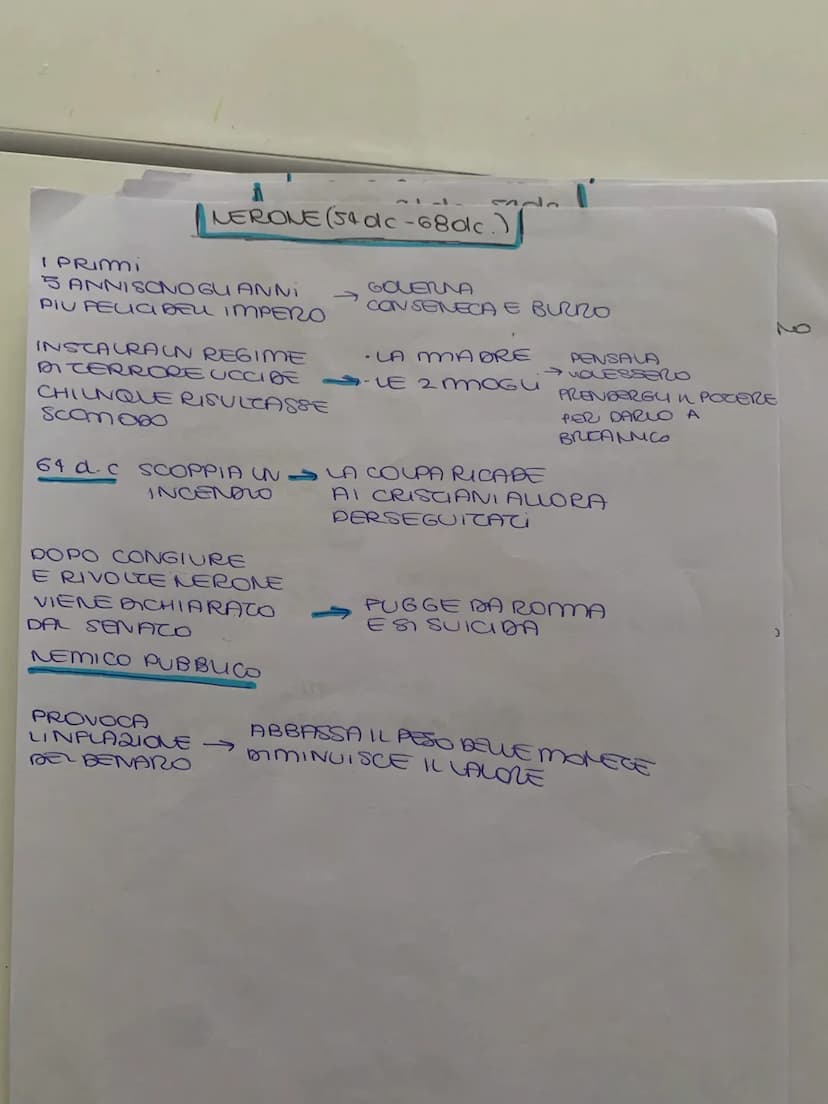 NERONE (54 dC - 68 dC.)
I PRIMI
5 ANNI SONO GLI ANNI
PIU FELICI DELL IMPERO
→ GOVERNA
CON SENECA E BURRO
INSTAURA UN REGIME
DI TERRORE UCCIDE
CHIUNQUE RISULTASSE
SCOMODO
→ • LA MADRE
• LE 2 MOGLI
→ PENSAVA
VOLESSERO
PRENDERGLI IL POTERE
PER DARLO A
BRITANNICO
64 d.C SCOPPIA UN
INCENDIO
→ LA COLPA RICADE
AI CRISTIANI ALLORA
PERSEGUITATI
DOPO CONGIURE
E RIVOLTE NERONE
VIENE DICHIARATO
DAL SENATO
NEMICO PUBBLICO
→ FUGGE DA ROMA
E SI SUICIDA
PROVOCA
L'INFLAZIONE
DEL DENARO
→ ABBASSA IL PESO DELLE MONETE
DIMINUISCE IL VALORE
NO